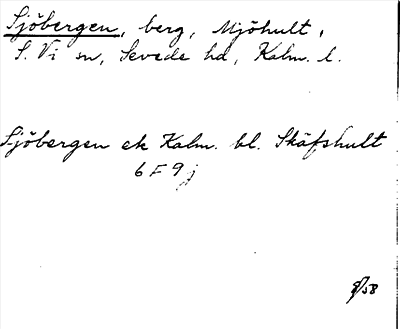 Sjöbergen, berg, Mjöhult,
S. Vi sn, Sevede hd, Kalm. l.
Sjöbergen ek Kalm. bl. Skäfshult
6 F 9 j